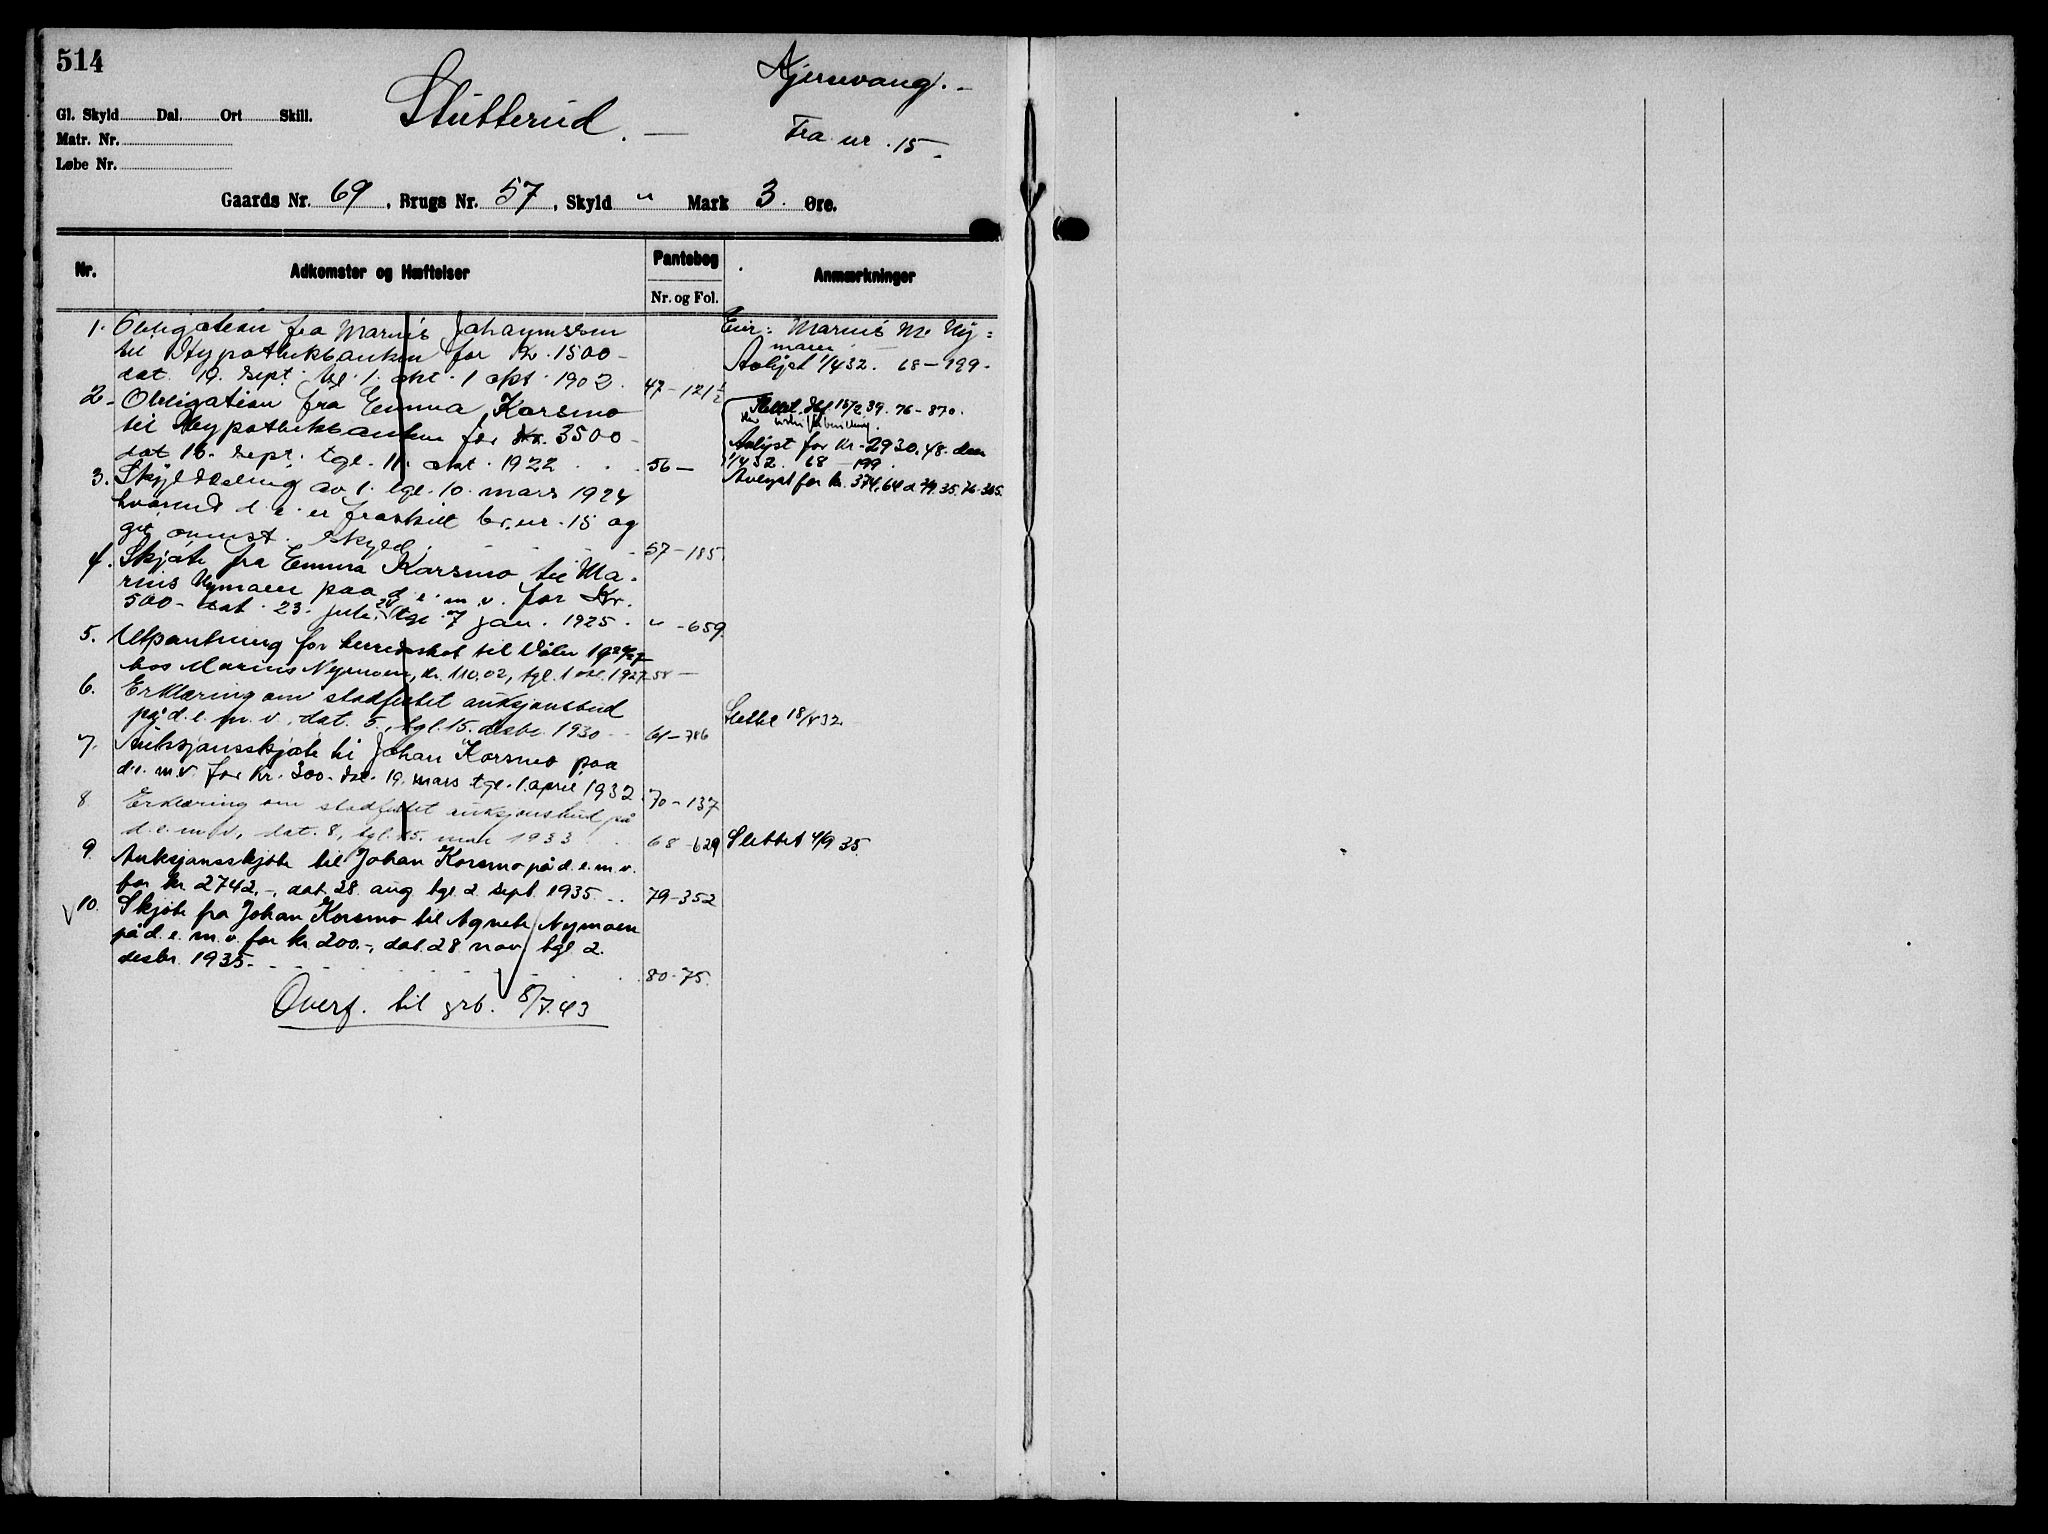 514
Stutterud. —
Kjernevang. -
Fra nr. 15.
Gl. Skyld Dal. Ort Skill.
Matr. Nr.
Løbe Nr.
Gaards Nr. 69, Brugs Nr. 57, Skyld " Mark 3. Øre.
Nr. Adkomster og Hæftelser Pantebog Nr. og Fol. Anmærkninger
1. Obligation fra Marius Johannessen
til Hypothekbanken for Kr. 1500 -
dat. 19. sept. tgl. 1. okt. 1902. 47 - 121
Eier: Marius M. Ny=
moen
Avlyst 1/4 32. 68 - 199.
2. Obligation fra Emma Korsmo
til Hypothekbanken for Kr. 3500 -
dat 16. sept. tgl. 11. okt. 1922 . . . 56 -
Slettet 15/2 39. 76 - 870.
Avlyst for kr. 2930,48 den
1/4 32. 68 - 199.
Avlyst for kr. 374,64 35. 76. 365.
3. Skylddeling av 1. tgl. 10. mars 1924
hvorved d. e. er fraskilt br. nr. 15 og
git ovnnst. skyld. 57 - 185
4. Skjøte fra Emma Korsmo til Ma-
rius Nymoen paa d. e. m. v. for Kr.
500 - dat. 23. juli 24 tgl. 7 jan. 1925. " - 659.
5. Utpantning for kuredskat til Våler 1926/27
hos Marius Nymoen, kr. 110,02, tgl. 1 okt. 1927 58 -
6. Erklæring om stadfestet auksjonsbud
på d. e. m. v., dat. 5, tgl. 15. desbr. 1930 - - 64 - 786
Slettet 18/4 32
7. Auksjonsskjøte til Johan Korsmo paa
d. e. m. v. for kr. 300 - dat. 19. mars tgl. 1. april 1932 70 - 137
8 Erklæring om stadfestet auksjonsbud på
d. e. m. v., dat. 8, tgl. 15. mai 1933 68 - 629 Slettet 4/9 35.
9. Auksjonsskjøte til Johan Korsmo på d. e. m. v.
for kr. 2742.-, dat. 28. aug tgl. 2. sept. 1935. .. 79 - 352
10. Skjøte fra Johan Korsmo til Agnete Nymoen
på d. e. m. v. for kr. 200.-, dat. 28. nov. tgl. 2.
desbr. 1935. 80 - 75.
Overf. til grb. 8/7.43